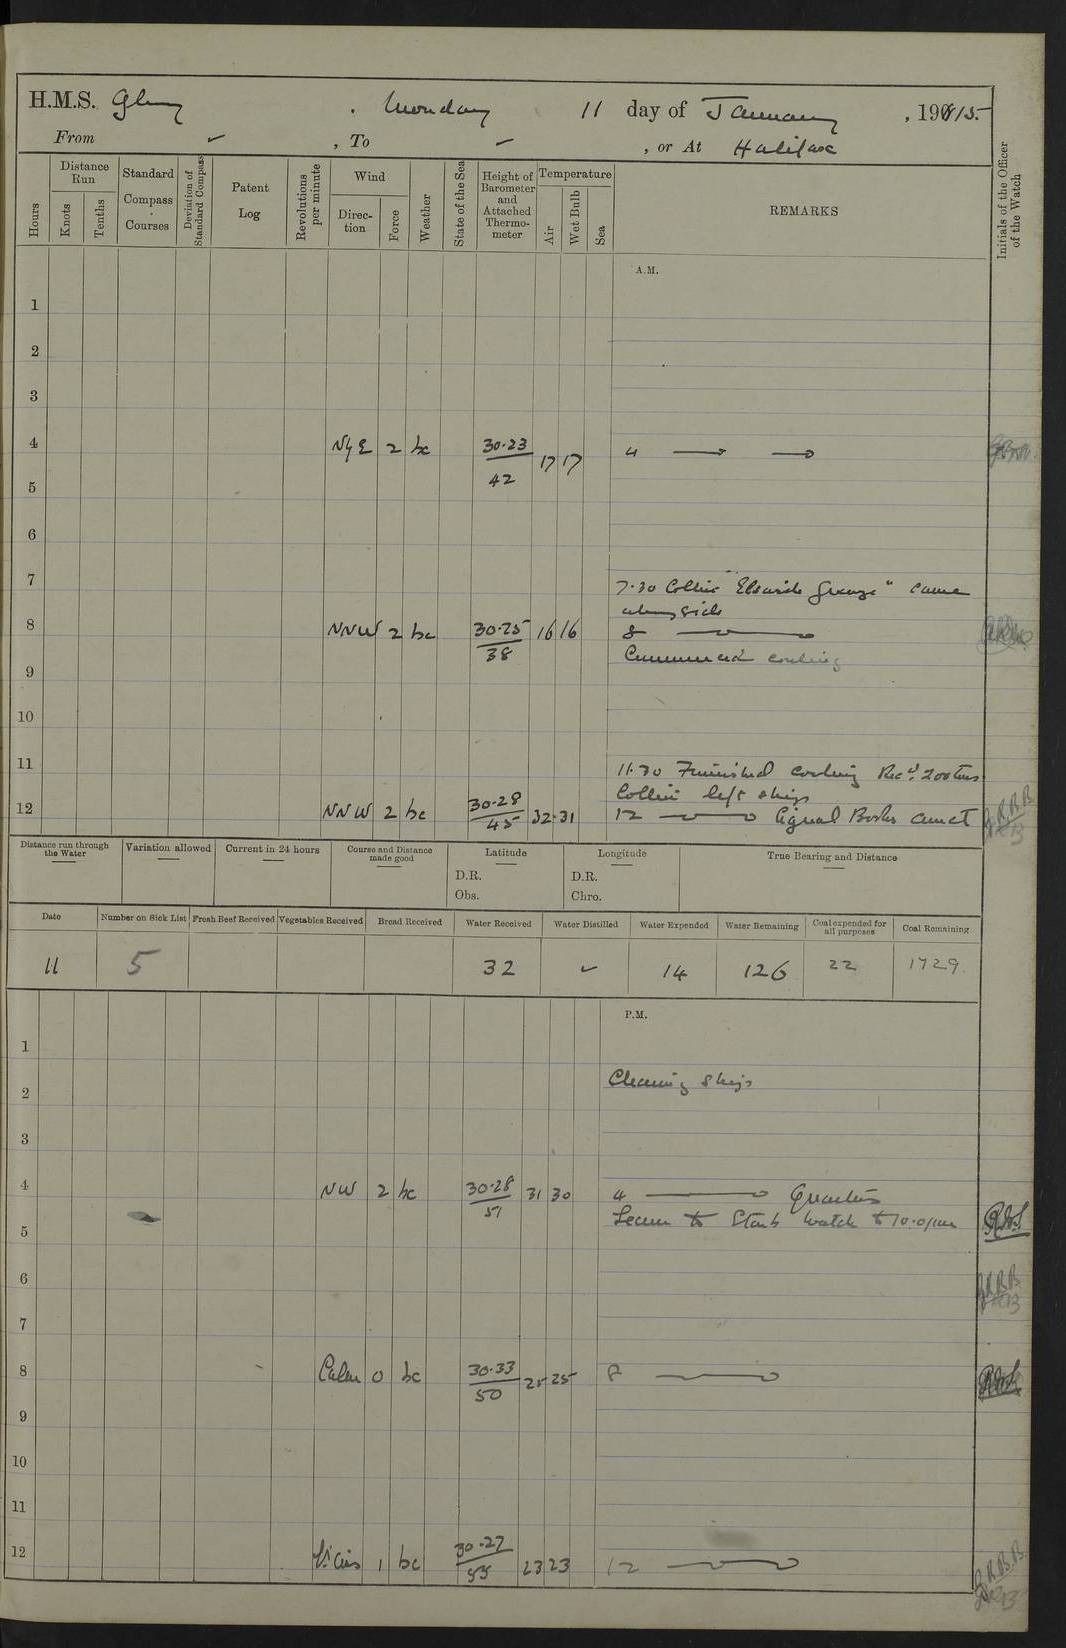 H.M.S. Glory, Monday 11 day of January, 1915.
From ✓, To –, or At Halifax
Hours
Distance Run
Knots
Tenths
Standard Compass Courses
Deviation of Standard Compass
Patent Log
Revolutions per minute
Wind
Direction
Force
Weather
State of the Sea
Height of Barometer and Attached Thermometer
Temperature
Air
Wet Bulb
Sea
REMARKS
Initials of the Officer of the Watch
A.M.
1
2
3
4 NyE 2 bc 30·23/42 17 17 4
5
6
7 7·30 Collier " " came
alongside
8 NNW 2 bc 30·25/38 16 16 8
Commenced coaling
9
10
11 11·30 Finished coaling Recd. 200 tons
Collier left ship
12 NNW 2 bc 30·28/45 32·31 12 Signal Books correct
Distance run through the Water
Variation allowed
Current in 24 hours
Course and Distance made good
Latitude
D.R.
Obs.
Longitude
D.R.
Chro.
True Bearing and Distance
Date Number on Sick List Fresh Beef Received Vegetables Received Bread Received Water Received Water Distilled Water Expended Water Remaining Coal expended for all purposes Coal Remaining
11 5 32 ✓ 14 126 22 1729.
P.M.
1
2 Cleaning ship
3
4 NW 2 bc 30·28/51 31 30 4 Quarters
Leave to Starb watch to 10.0 pm
5
6
7
8 Calm 0 bc 30·33/50 25 25 8
9
10
11
12 1 bc 30·27/55 23 23 12